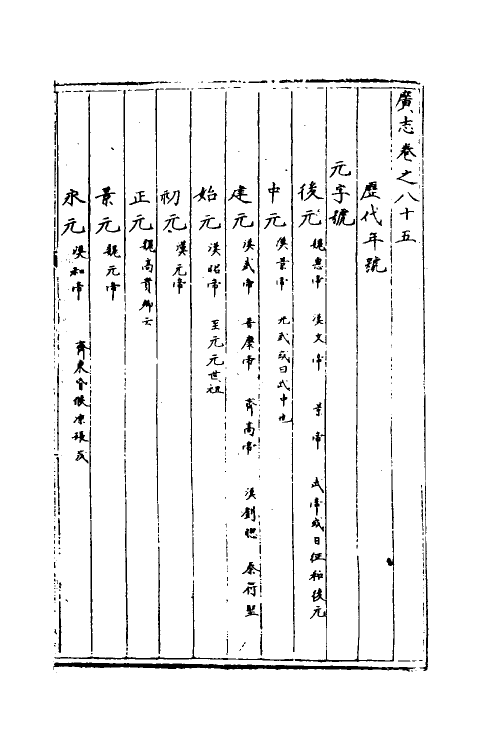 廣志卷之八十五
歷代年號
元字號
後元 魏惠帝 漢文帝 景帝 武帝或曰征和後元
中元 漢景帝 光武或曰武中也
建元 漢武帝 晉康帝 齊高帝 漢劉聰 秦苻堅
始元 漢昭帝 至元元世祖
初元 漢元帝
正元 魏高貴鄉公
景元 魏元帝
永元 漢和帝 齊東昏侯 凉張茂